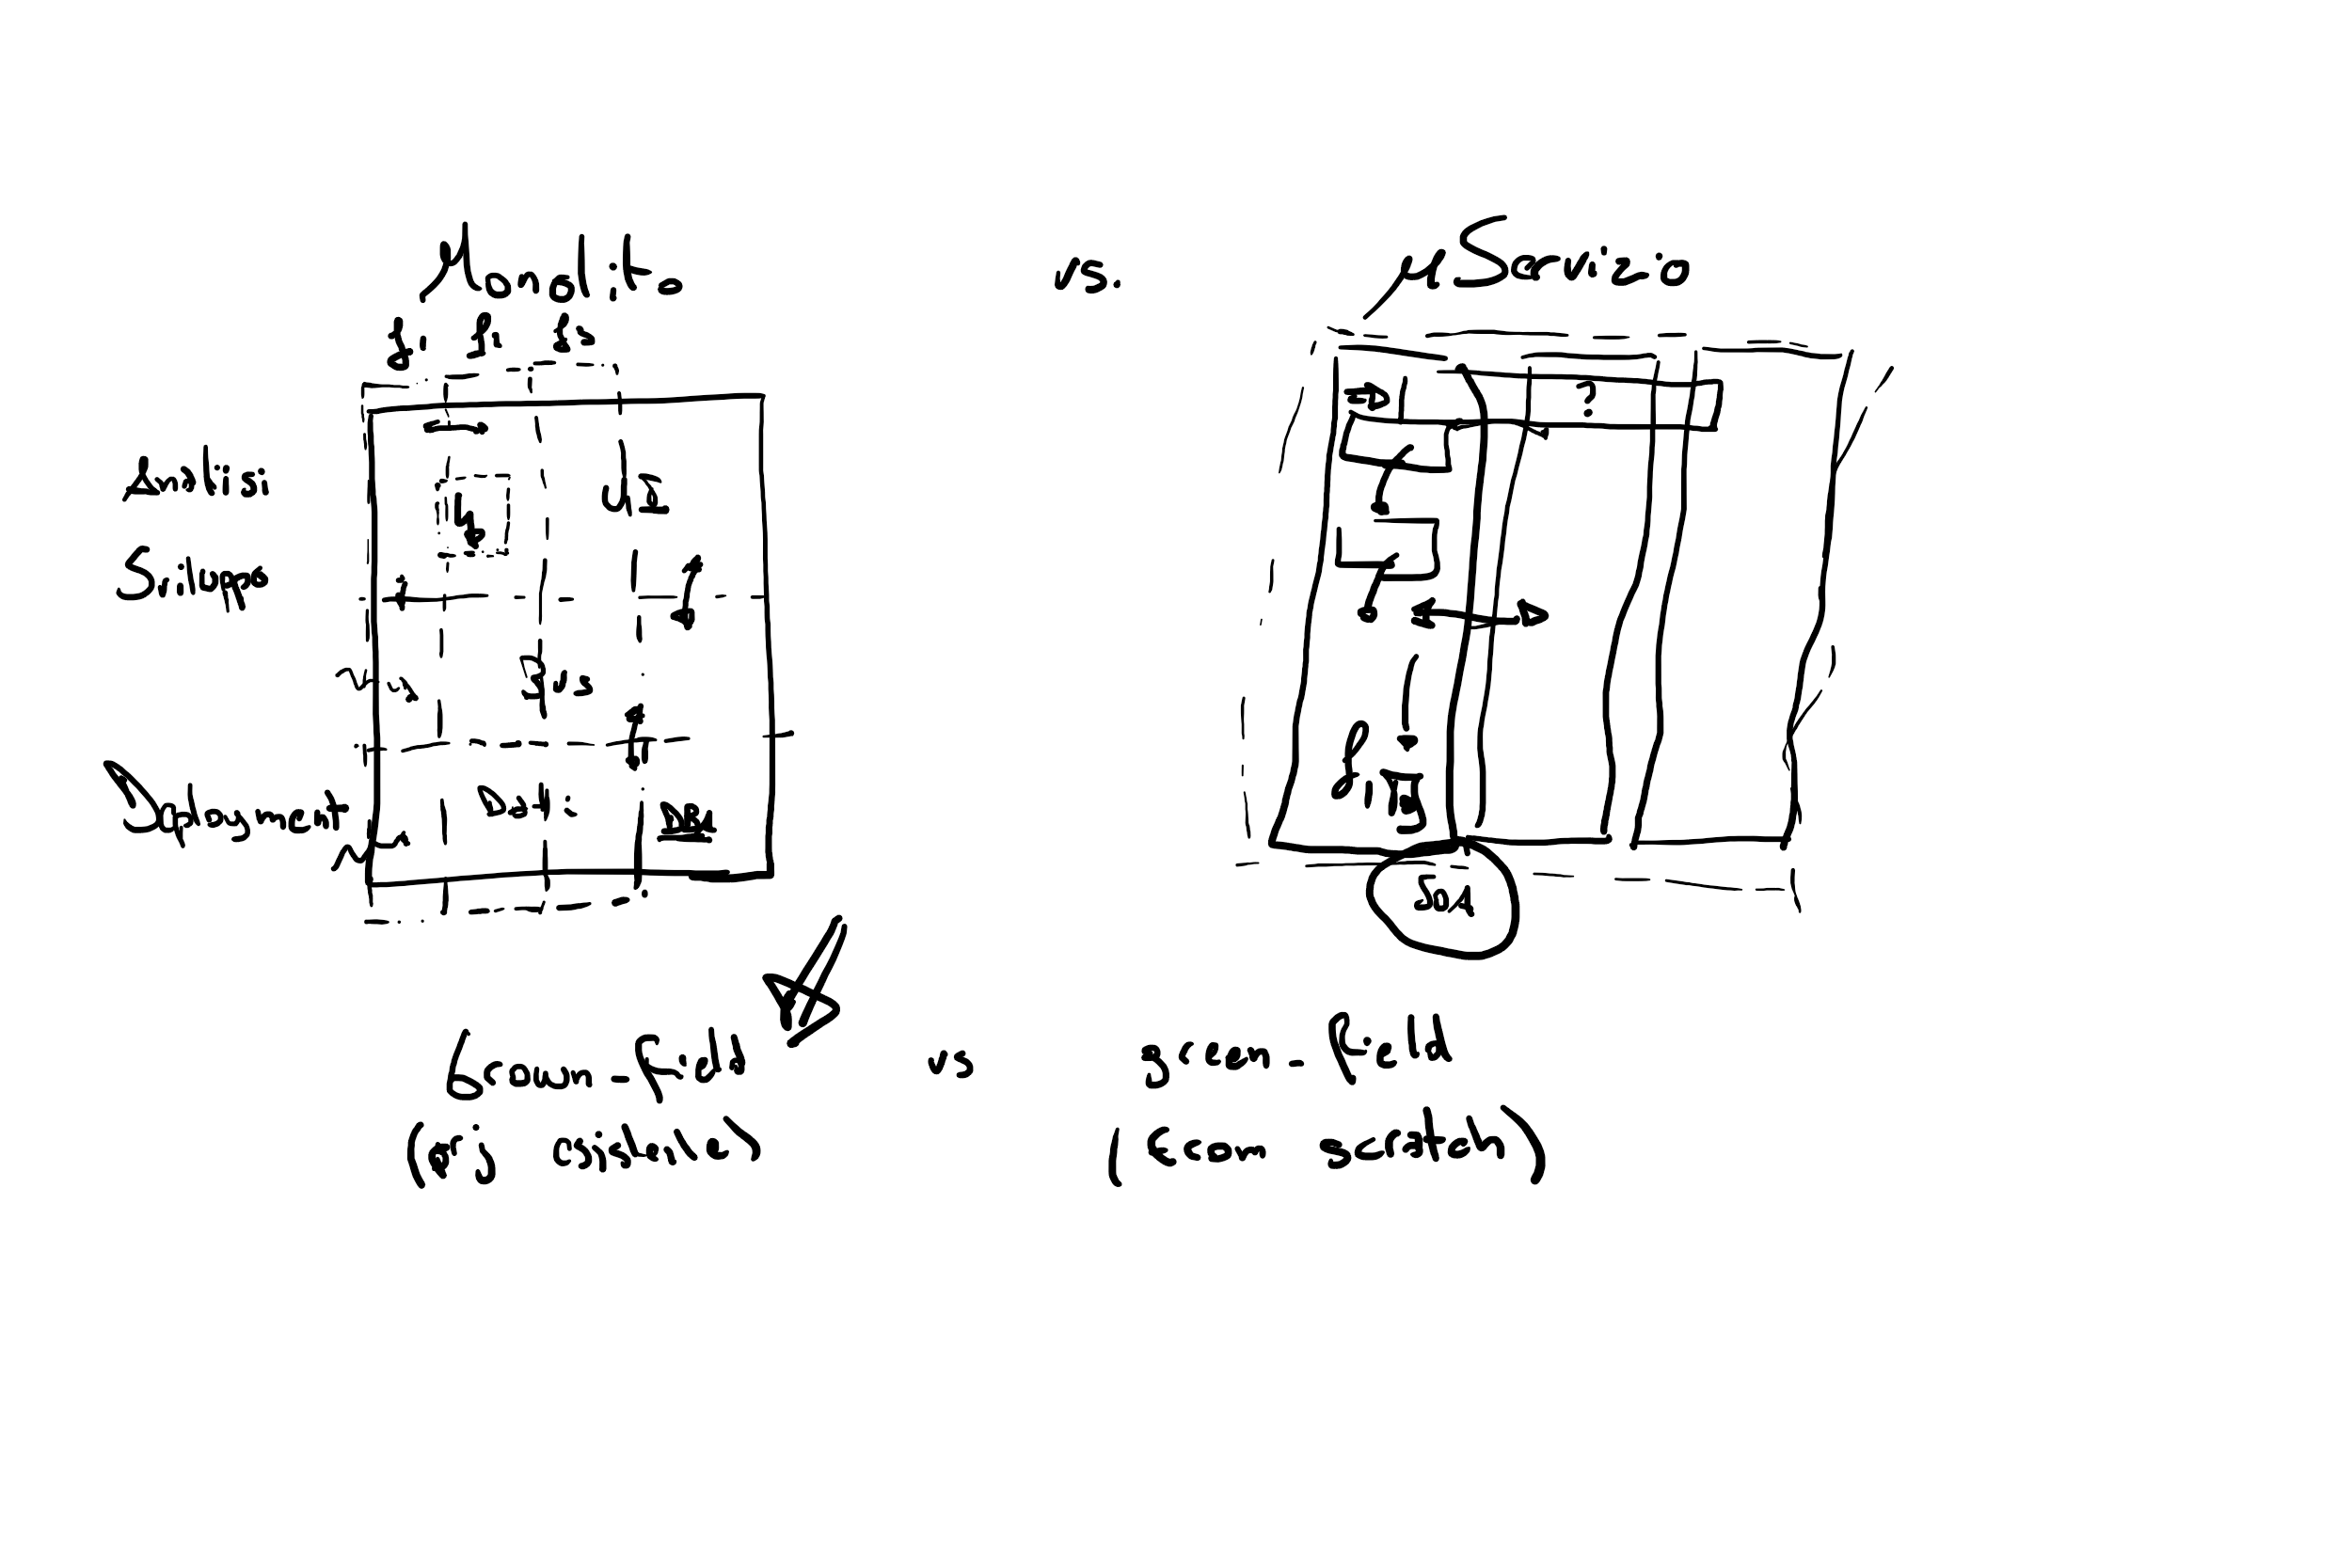 Monolito vs. μServizio
f1 f2 f3
?
Analisi
UI
Sviluppo
Bus
Deployment
Dati
DB
SOA
brown-field vs green-field
(già esistente) (from scratch)